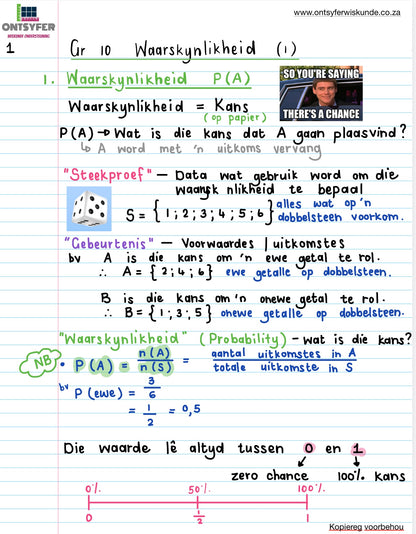 www.ontsyferwiskunde.co.za
ONTSYFER
1
Gr 10 Waarskynlikheid (1)
1. Waarskynlikheid P(A)
SO YOU'RE SAYING
THERE'S A CHANCE
Waarskynlikheid = Kans
(op papier)
P(A) → Wat is die kans dat A gaan plaasvind?
↳ A word met 'n uitkoms vervang
"Steekproef" – Data wat gebruik word om die
waarsk nlikheid te bepaal
S = { 1 ; 2 ; 3 ; 4 ; 5 ; 6 } alles wat op 'n
dobbelsteen voorkom.
"Gebeurtenis" – Voorwaardes | uitkomstes
bv A is die kans om 'n ewe getal te rol.
∴ A = { 2 ; 4 ; 6 } ewe getalle op dobbelsteen.
B is die kans om 'n onewe getal te rol.
∴ B = { 1 ; 3 ; 5 } onewe getalle op dobbelsteen.
"Waarskynlikheid" (Probability) – wat is die kans?
NB • P(A) = n(A) / n(S) = aantal uitkomstes in A / totale uitkomste in S
bv P(ewe) = 3/6
= 1/2 = 0,5
Die waarde lê altyd tussen 0 en 1
zero chance 100% kans
0% 50% 100%
0 1/2 1
Kopiereg voorbehou